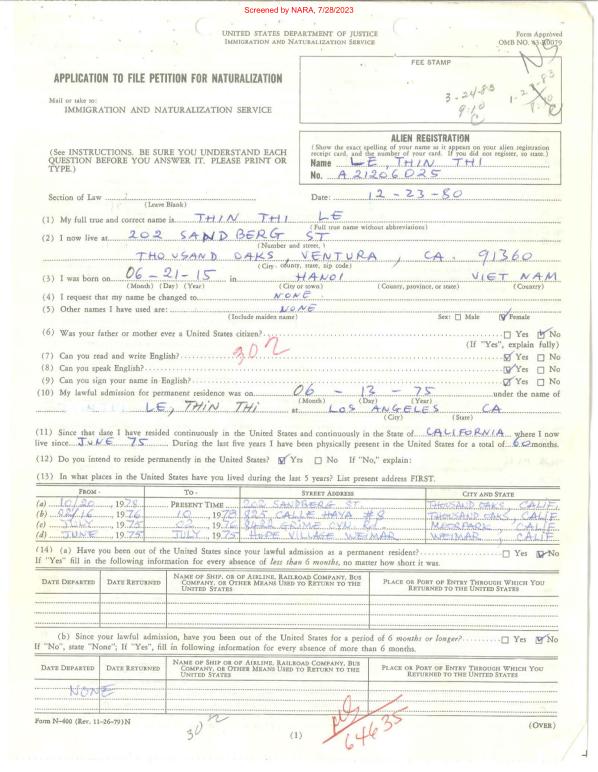 Screened by NARA, 7/28/2023
UNITED STATES DEPARTMENT OF JUSTICE
IMMIGRATION AND NATURALIZATION SERVICE
Form Approved
OMB NO. 43-R0079
APPLICATION TO FILE PETITION FOR NATURALIZATION
Mail or take to:
IMMIGRATION AND NATURALIZATION SERVICE
FEE STAMP
3-24-83
9:10
C
(See INSTRUCTIONS. BE SURE YOU UNDERSTAND EACH QUESTION BEFORE YOU ANSWER IT. PLEASE PRINT OR TYPE.)
ALIEN REGISTRATION
(Show the exact spelling of your name as it appears on your alien registration receipt card, and the number of your card. If you did not register, so state.)
Name LE, THIN THI
No. A 21206025
Section of Law
(Leave Blank)
Date: 12-23-80
(1) My full true and correct name is THIN THI LE
(Full true name without abbreviations)
(2) I now live at 202 SANDBERG ST
(Number and street,)
THOUSAND OAKS, VENTURA, CA. 91360
(City, county, state, zip code)
(3) I was born on 06-21-15 in HANOI VIET NAM
(Month) (Day) (Year) (City or town) (County, province, or state) (Country)
(4) I request that my name be changed to NONE
(5) Other names I have used are: NONE
(Include maiden name) Sex: Male Female
(6) Was your father or mother ever a United States citizen? Yes No
(If "Yes", explain fully)
302
(7) Can you read and write English? Yes No
(8) Can you speak English? Yes No
(9) Can you sign your name in English? Yes No
(10) My lawful admission for permanent residence was on 06-13-75 under the name of
(Month) (Day) (Year)
LE, THIN THI at LOS ANGELES CA
(City) (State)
(11) Since that date I have resided continuously in the United States and continuously in the State of CALIFORNIA where I now
live since JUNE 75 During the last five years I have been physically present in the United States for a total of 60 months.
(12) Do you intend to reside permanently in the United States? Yes No If "No," explain:
(13) In what places in the United States have you lived during the last 5 years? List present address FIRST.
FROM- TO- STREET ADDRESS CITY AND STATE
(a) 10/20, 1978 PRESENT TIME 202 SANDBERG ST. THOUSAND OAKS, CALIF.
(b) 02/16, 1976 10, 1978 825 CALLE HAYA #8 THOUSAND OAKS, CALIF
(c) JULY, 1975 02, 1976 GRIME CYN. Rd. MOORPARK, CALIF
(d) JUNE, 1975 JULY, 1975 HOPE VILLAGE WEIMAR WEIMAR, CALIF
(14) (a) Have you been out of the United States since your lawful admission as a permanent resident? Yes No
If "Yes" fill in the following information for every absence of less than 6 months, no matter how short it was.
DATE DEPARTED DATE RETURNED NAME OF SHIP, OR OF AIRLINE, RAILROAD COMPANY, BUS COMPANY, OR OTHER MEANS USED TO RETURN TO THE UNITED STATES PLACE OR PORT OF ENTRY THROUGH WHICH YOU RETURNED TO THE UNITED STATES
(b) Since your lawful admission, have you been out of the United States for a period of 6 months or longer? Yes No
If "No", state "None"; If "Yes", fill in following information for every absence of more than 6 months.
DATE DEPARTED DATE RETURNED NAME OF SHIP OR OF AIRLINE, RAILROAD COMPANY, BUS COMPANY, OR OTHER MEANS USED TO RETURN TO THE UNITED STATES PLACE OR PORT OF ENTRY THROUGH WHICH YOU RETURNED TO THE UNITED STATES
NONE
Form N-400 (Rev. 11-26-79)N
302
(1)
64635
(OVER)